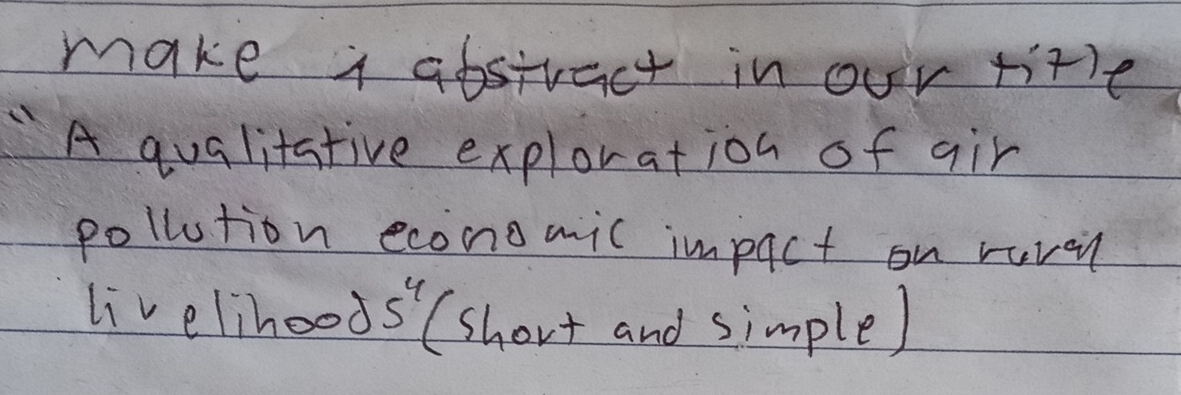 make a abstract in our title
"A qualitative exploration of air
pollution economic impact on rural
livelihoods" (short and simple)